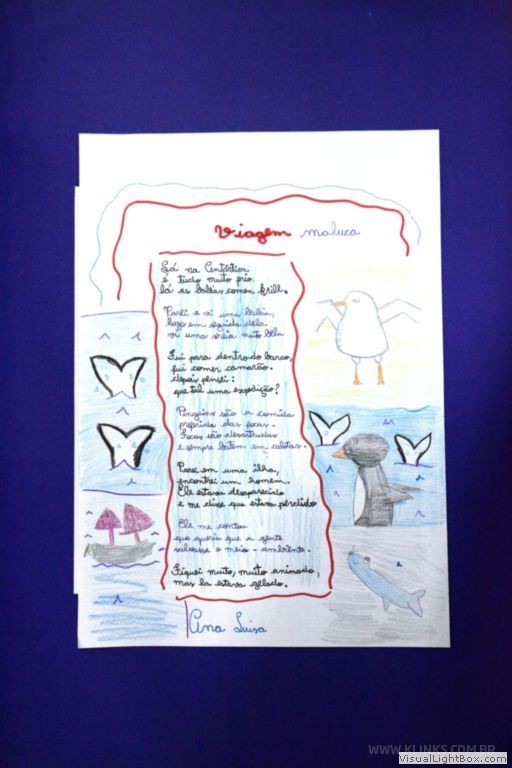 Viagem maluca
Lá na Antártica
é tudo muito frio
lá as baleias comem krill.
Parti e vi uma baleia,
logo em seguida dela
vi uma sereia muito bela
Fui para dentro do barco,
fui comer camarão.
depois pensei:
que tal uma expedição?
Pinguins são a comida
preferida das focas.
Focas são desastradas
e sempre batem em calotas.
Parei em uma ilha,
encontrei um homem.
Ele estava desaparecido
e me disse que estava perdido
Ele me contou
que queria que a gente
salvasse o meio-ambiente.
Fiquei muito, muito animado,
mas la estava gelado.
Ana Luisa
WWW.KLINKS.COM.BR
VisualLightBox.com